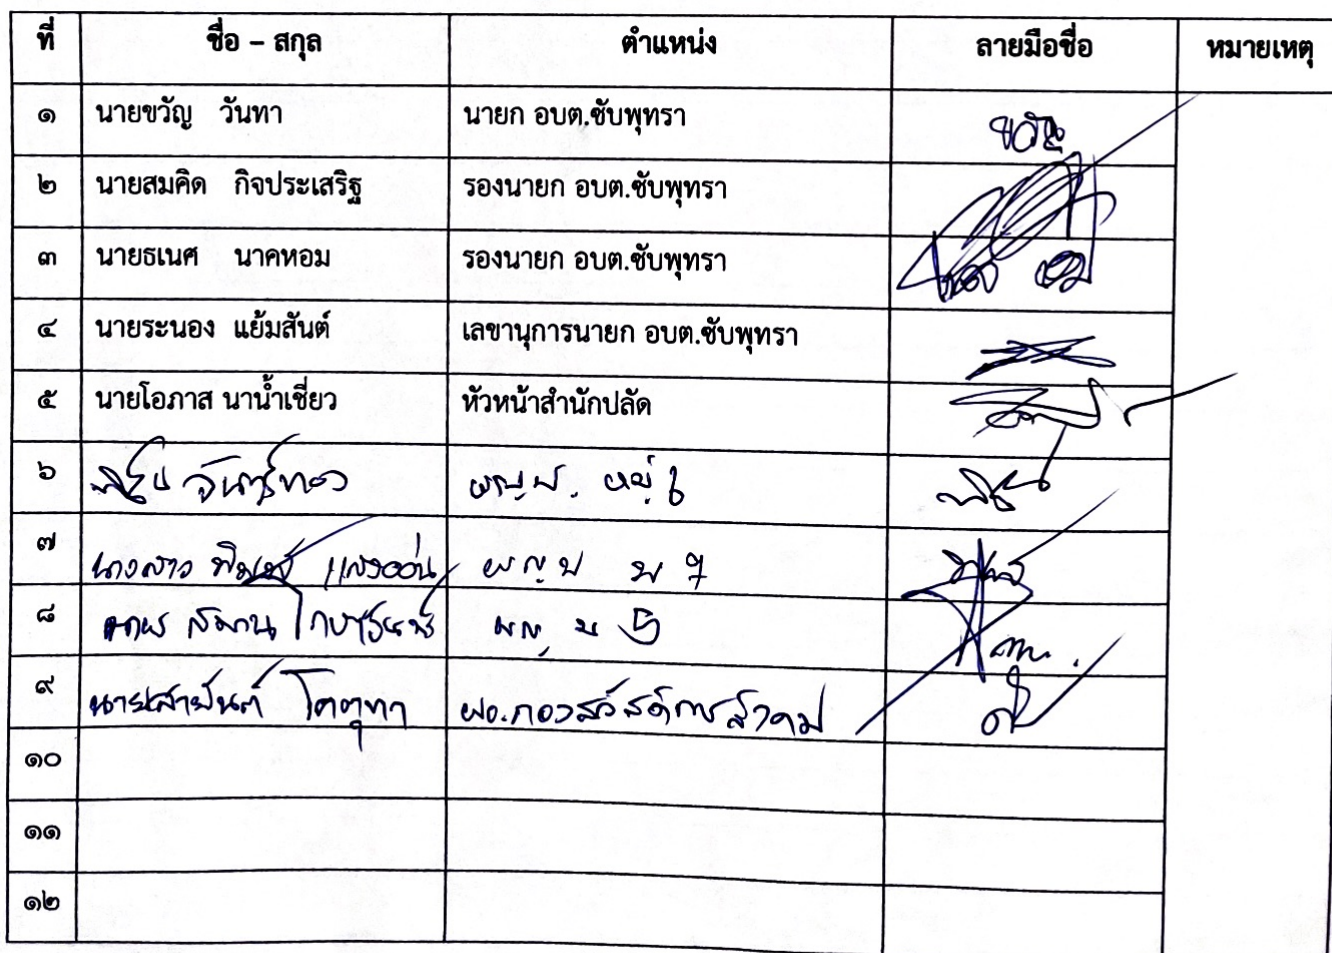 ที่ ชื่อ – สกุล ตำแหน่ง ลายมือชื่อ หมายเหตุ
๑ นายขวัญ วันทา นายก อบต.ซับพุทรา ขวัญ
๒ นายสมคิด กิจประเสริฐ รองนายก อบต.ซับพุทรา
๓ นายธเนศ นาคหอม รองนายก อบต.ซับพุทรา
๔ นายระนอง แย้มสันต์ เลขานุการนายก อบต.ซับพุทรา
๕ นายโอภาส นาน้ำเชี่ยว หัวหน้าสำนักปลัด
๖ จันทร์ทอง
๗ นางสาว แสงอ่อน ผญบ ม ๗
๘ สมาน
๙ นายสายันต์ โคตุทา ผอ.กองสวัสดิการสังคม
๑๐
๑๑
๑๒